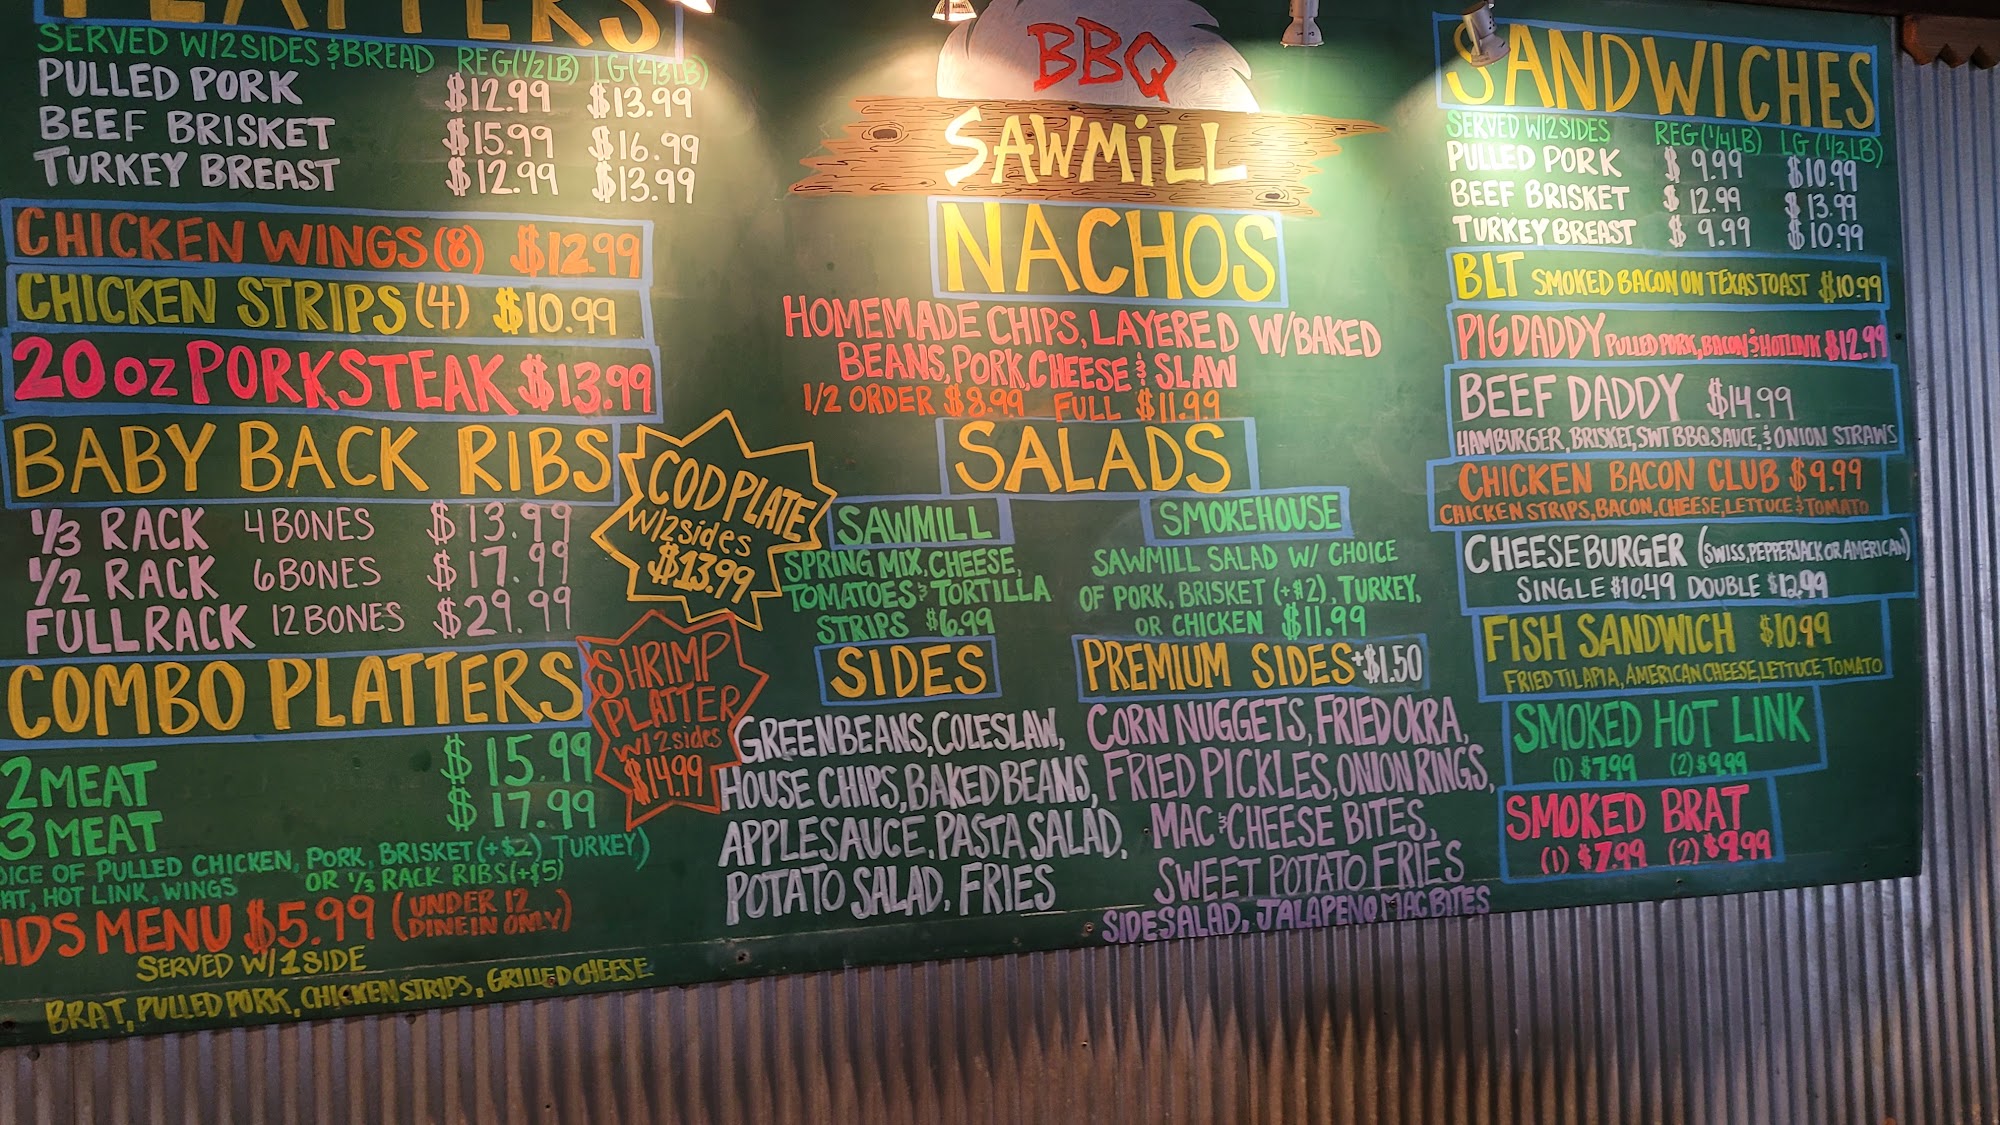 PLATTERS
SERVED W/2 SIDES & BREAD REG (1/2 LB) LG (2/3 LB)
PULLED PORK $12.99 $13.99
BEEF BRISKET $15.99 $16.99
TURKEY BREAST $12.99 $13.99
CHICKEN WINGS (8) $12.99
CHICKEN STRIPS (4) $10.99
20 oz PORK STEAK $13.99
BABY BACK RIBS
1/3 RACK 4 BONES $13.99
1/2 RACK 6 BONES $17.99
FULL RACK 12 BONES $29.99
COD PLATE
W/2 sides
$13.99
SHRIMP
PLATTER
W/2 sides
$14.99
COMBO PLATTERS
2 MEAT $15.99
3 MEAT $17.99
OICE OF PULLED CHICKEN, PORK, BRISKET (+$2) TURKEY,
AT, HOT LINK, WINGS OR 1/3 RACK RIBS (+$5)
IDS MENU $5.99 (UNDER 12
DINE IN ONLY)
SERVED W/ 1 SIDE
BRAT, PULLED PORK, CHICKEN STRIPS, GRILLED CHEESE
BBQ
SAWMILL
NACHOS
HOMEMADE CHIPS, LAYERED W/BAKED
BEANS, PORK, CHEESE & SLAW
1/2 ORDER $8.99 FULL $11.99
SALADS
SAWMILL
SPRING MIX, CHEESE,
TOMATOES & TORTILLA
STRIPS $6.99
SMOKEHOUSE
SAWMILL SALAD W/ CHOICE
OF PORK, BRISKET (+$2), TURKEY,
OR CHICKEN $11.99
SIDES
GREEN BEANS, COLESLAW,
HOUSE CHIPS, BAKED BEANS,
APPLESAUCE, PASTA SALAD,
POTATO SALAD, FRIES
PREMIUM SIDES +$1.50
CORN NUGGETS, FRIED OKRA,
FRIED PICKLES, ONION RINGS,
MAC & CHEESE BITES,
SWEET POTATO FRIES
SIDE SALAD, JALAPENO MAC BITES
SANDWICHES
SERVED W/2 SIDES REG (1/4 LB) LG (1/3 LB)
PULLED PORK $ 9.99 $10.99
BEEF BRISKET $ 12.99 $ 13.99
TURKEY BREAST $ 9.99 $ 10.99
BLT SMOKED BACON ON TEXAS TOAST $10.99
PIG DADDY PULLED PORK, BACON & HOT LINK $12.99
BEEF DADDY $14.99
HAMBURGER, BRISKET, SWT BBQ SAUCE, & ONION STRAWS
CHICKEN BACON CLUB $9.99
CHICKEN STRIPS, BACON, CHEESE, LETTUCE & TOMATO
CHEESEBURGER (SWISS, PEPPERJACK OR AMERICAN)
SINGLE $10.49 DOUBLE $12.99
FISH SANDWICH $10.99
FRIED TILAPIA, AMERICAN CHEESE, LETTUCE, TOMATO
SMOKED HOT LINK
(1) $7.99 (2) $9.99
SMOKED BRAT
(1) $7.99 (2) $9.99